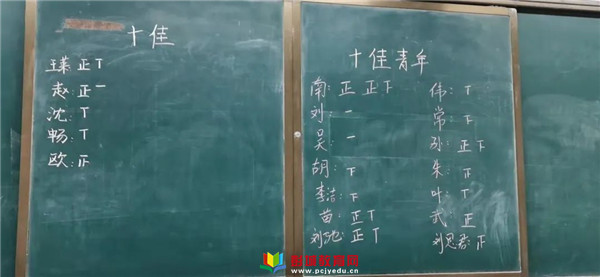 十佳
王蕻: 正丅
赵: 正一
沈: 丅
畅: 丅
欧: 正
十佳青年
南: 正 正 下
刘: 一
吴: 一
胡: 下
李洁: 下
苗: 正丅
刘驰: 正丅
伟: 丅
常: 下
孙: 正下
朱: 正
叶: 丅
武: 正
刘见君: 正
www.pcjyedu.cn